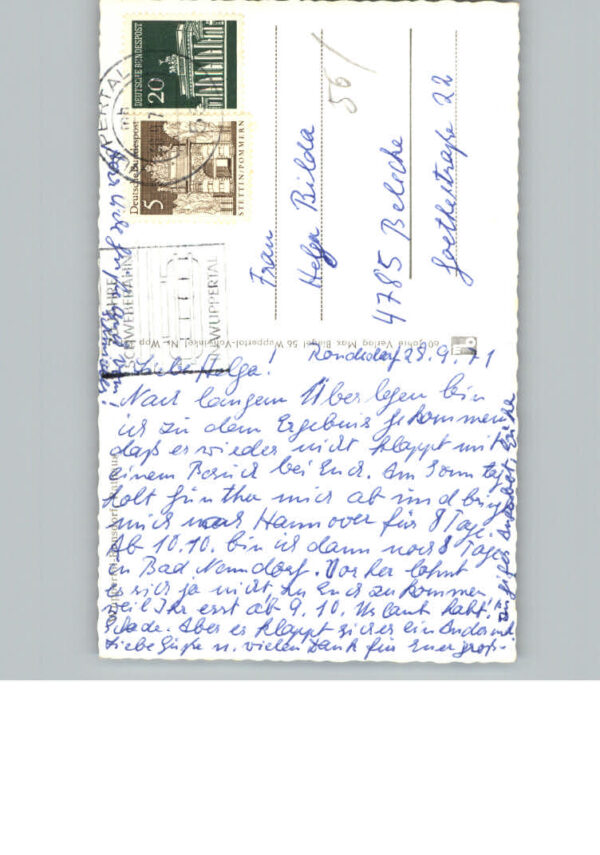 DEUTSCHE BUNDESPOST
20
Deutsche Bundespost
5
STETTIN/POMMERN
SCHWEBEBAHN
WUPPERTAL
56
Frau
Helga Bilda
4785 Belecke
Goethestraße 22
Verlag Max Biegel 56 Wuppertal-Vohwinkel
Liebe Helga! Ronsdorf 28.9.71
Nach langem Überlegen bin
ich zu dem Ergebnis gekommen
daß es wieder nicht klappt mit
einem Besuch bei Euch. Am Sonntag
holt Günther mich ab und bringt
mich nach Hannover für 8 Tage.
Ab 10.10. bin ich dann noch 8 Tage
in Bad Nenndorf. Vorher lohnt
es sich ja nicht zu Euch zu kommen,
weil Ihr erst ab 9.10. Urlaub habt!
Schade. Aber es klappt sicher ein andermal
Liebe Grüße u. vielen Dank für Euer groß-
zügiges Angebot.